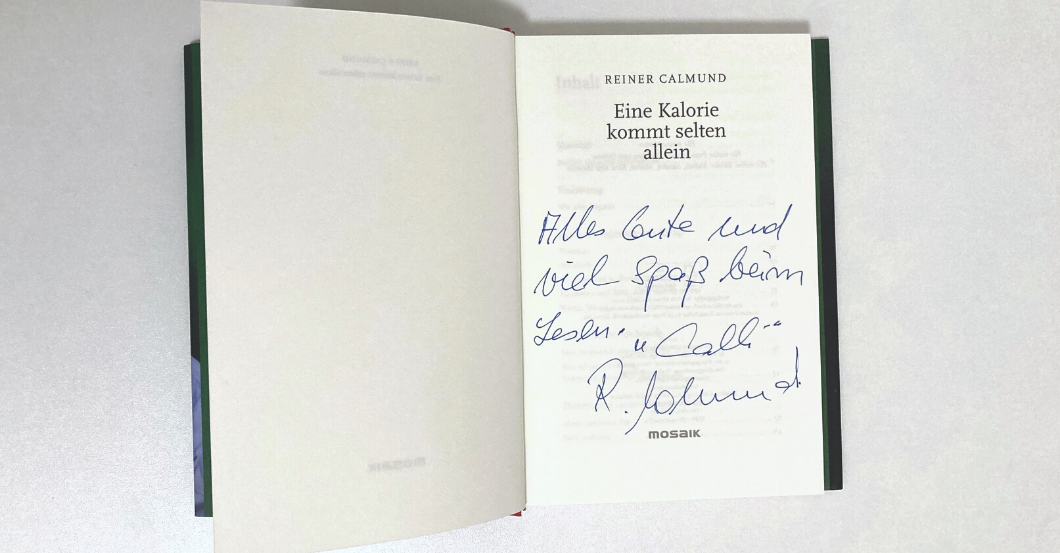 REINER CALMUND
Eine Kalorie
kommt selten
allein
Alles Gute und
viel Spaß beim
Lesen. "Calli"
R. Calmund
mosaik
Inhalt